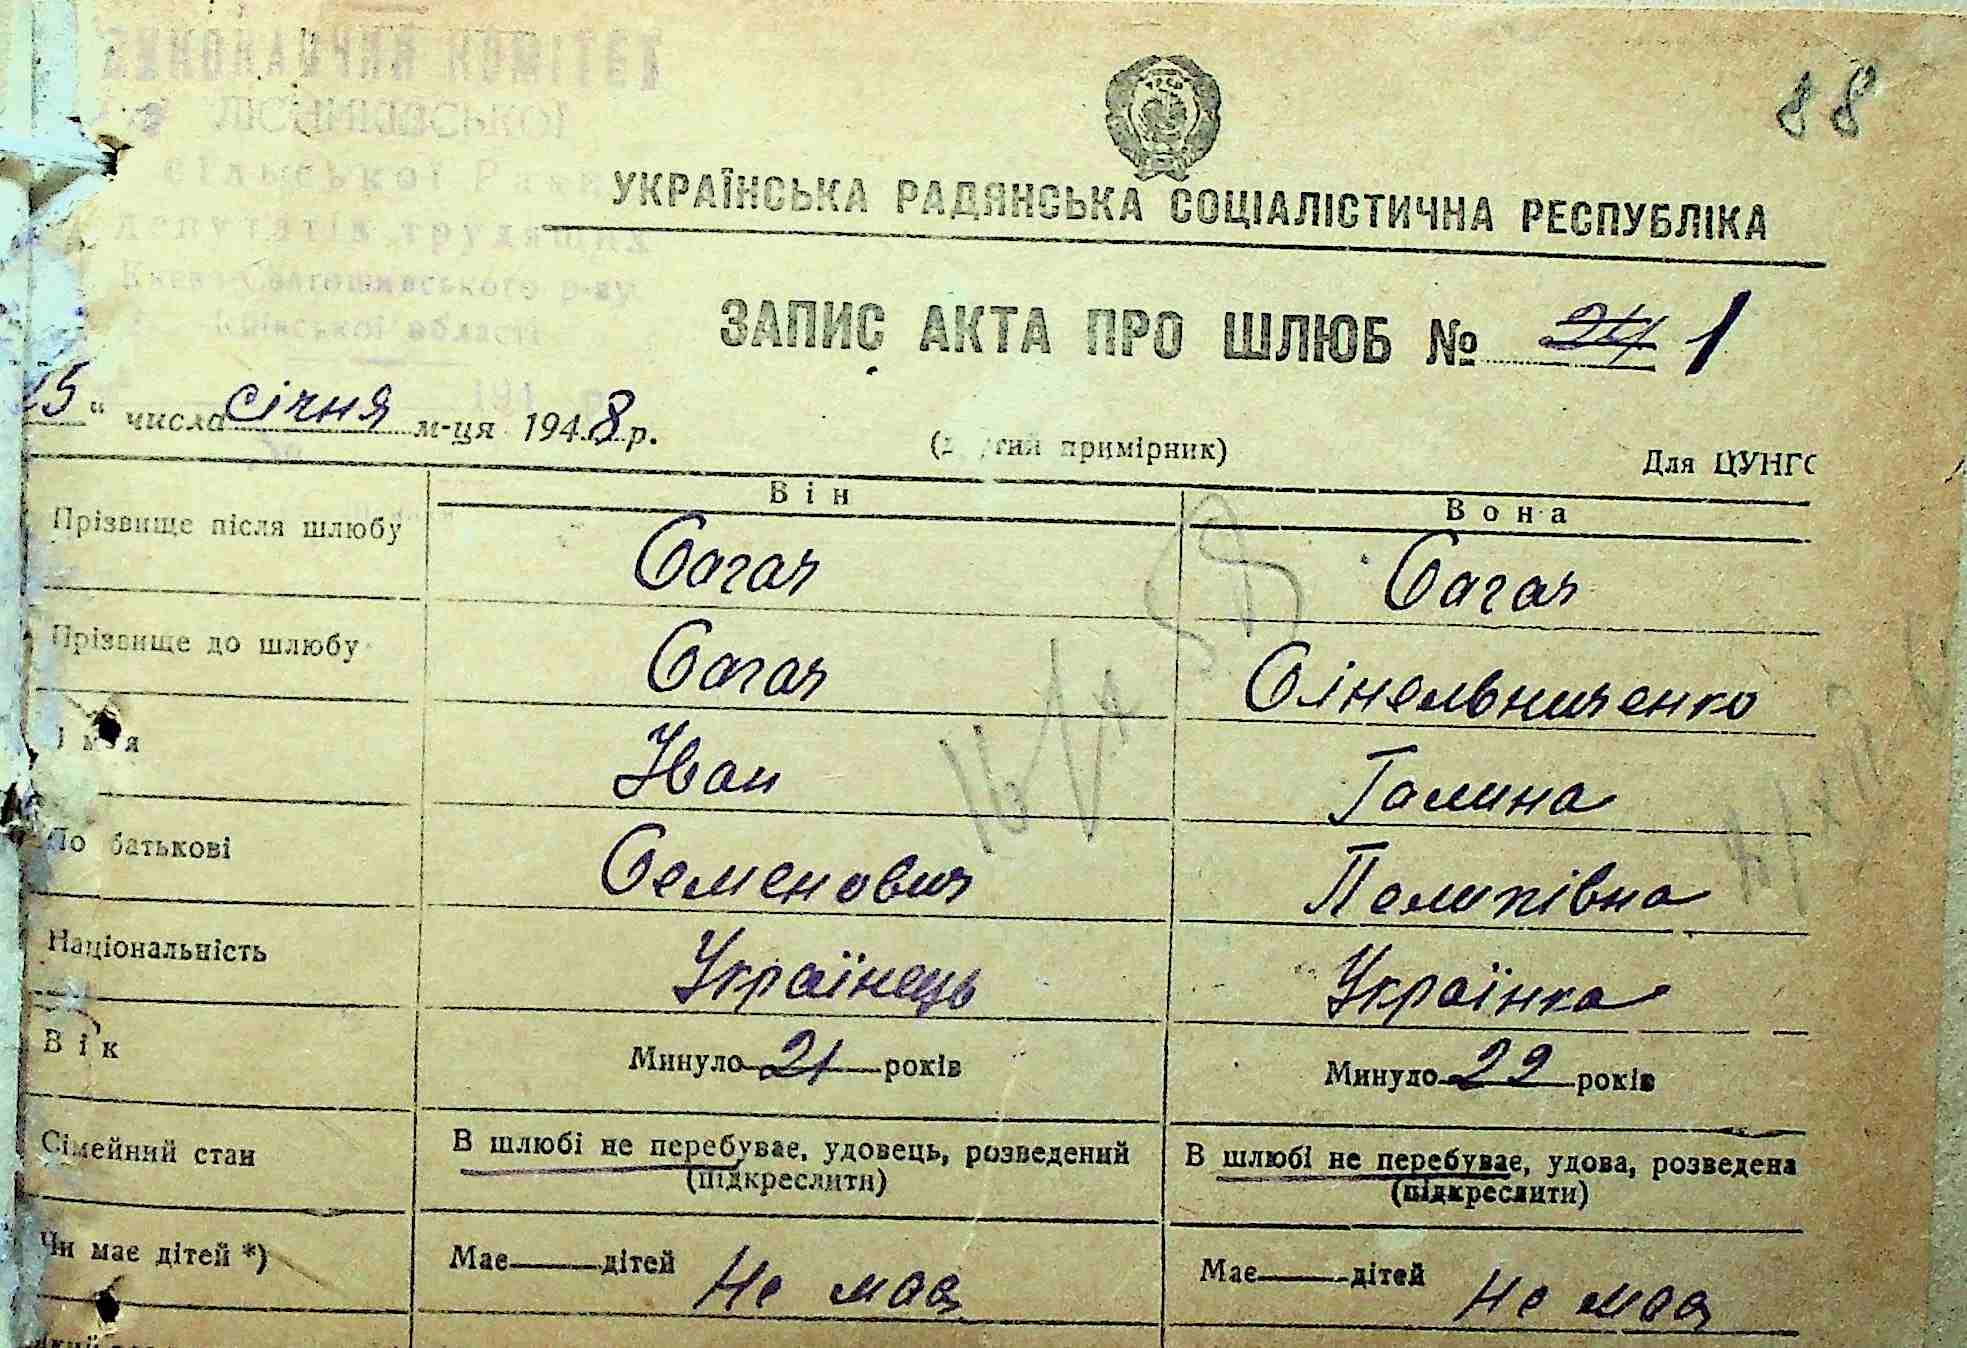 ВИКОНАВЧИЙ КОМІТЕТ
88
ЛІСНИКІВСЬКОЇ
сільської Ради
УКРАЇНСЬКА РАДЯНСЬКА СОЦІАЛІСТИЧНА РЕСПУБЛІКА
депутатів трудящих
Києво-Святошинського р-ну
Київської області
ЗАПИС АКТА ПРО ШЛЮБ № 24 1
15 " числа січня м-ця 1948 р.
(другий примірник) Для ЦУНГО
Він Вона
Прізвище після шлюбу Сагач Сагач
Прізвище до шлюбу Сагач Сінельниченко
Ім'я Іван Галина
По батькові Семенович Пелипівна
Національність Українець Українка
Вік Минуло 21 років Минуло 22 років
Сімейний стан В шлюбі не перебуває, удовець, розведений В шлюбі не перебуває, удова, розведена
(підкреслити) (підкреслити)
Чи має дітей *) Має дітей Не має Має дітей Не має